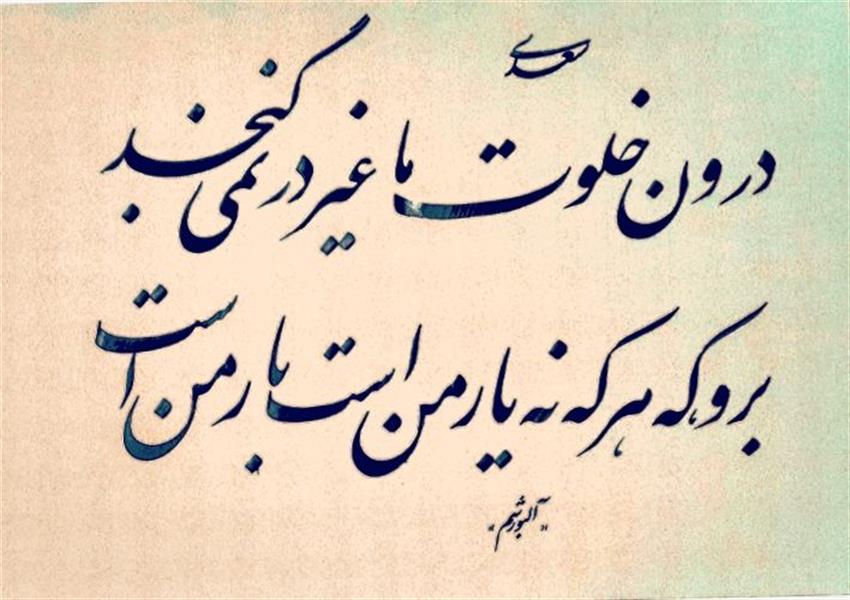 سعدی
درون خلوت ما غیر در نمی گنجد
برو که هر که نه یار من است بار من است
"آلبورشم"